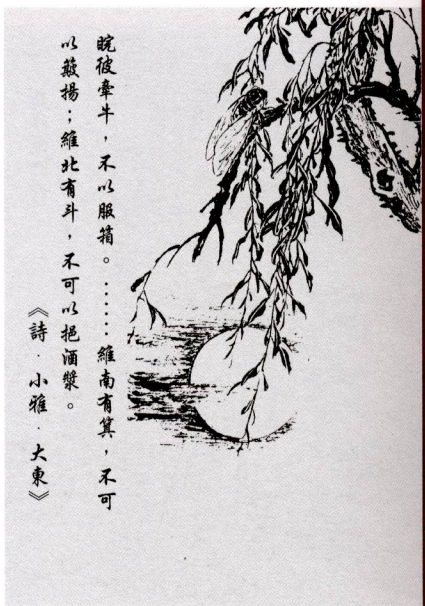 睆彼牽牛，不以服箱。……維南有箕，不可
以簸揚；維北有斗，不可以挹酒漿。
《詩．小雅．大東》